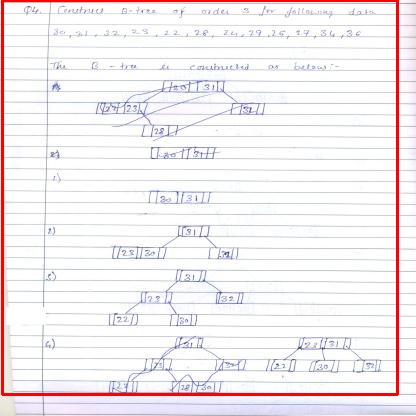 Q4. Construct B-tree of order 3 for following data
30, 31, 32, 23, 22, 28, 24, 29, 26, 27, 34, 36
The B-tree is constructed as below:-
[30][31]
[22][23] [32]
[28]
2) [30][31]
1)
[30][31]
2) [31]
[23][30]
3) [31]
[23] [32]
[22] [30]
4) [31] [23][31]
[23] [32] [22] [30] [32]
[22] [28][30]